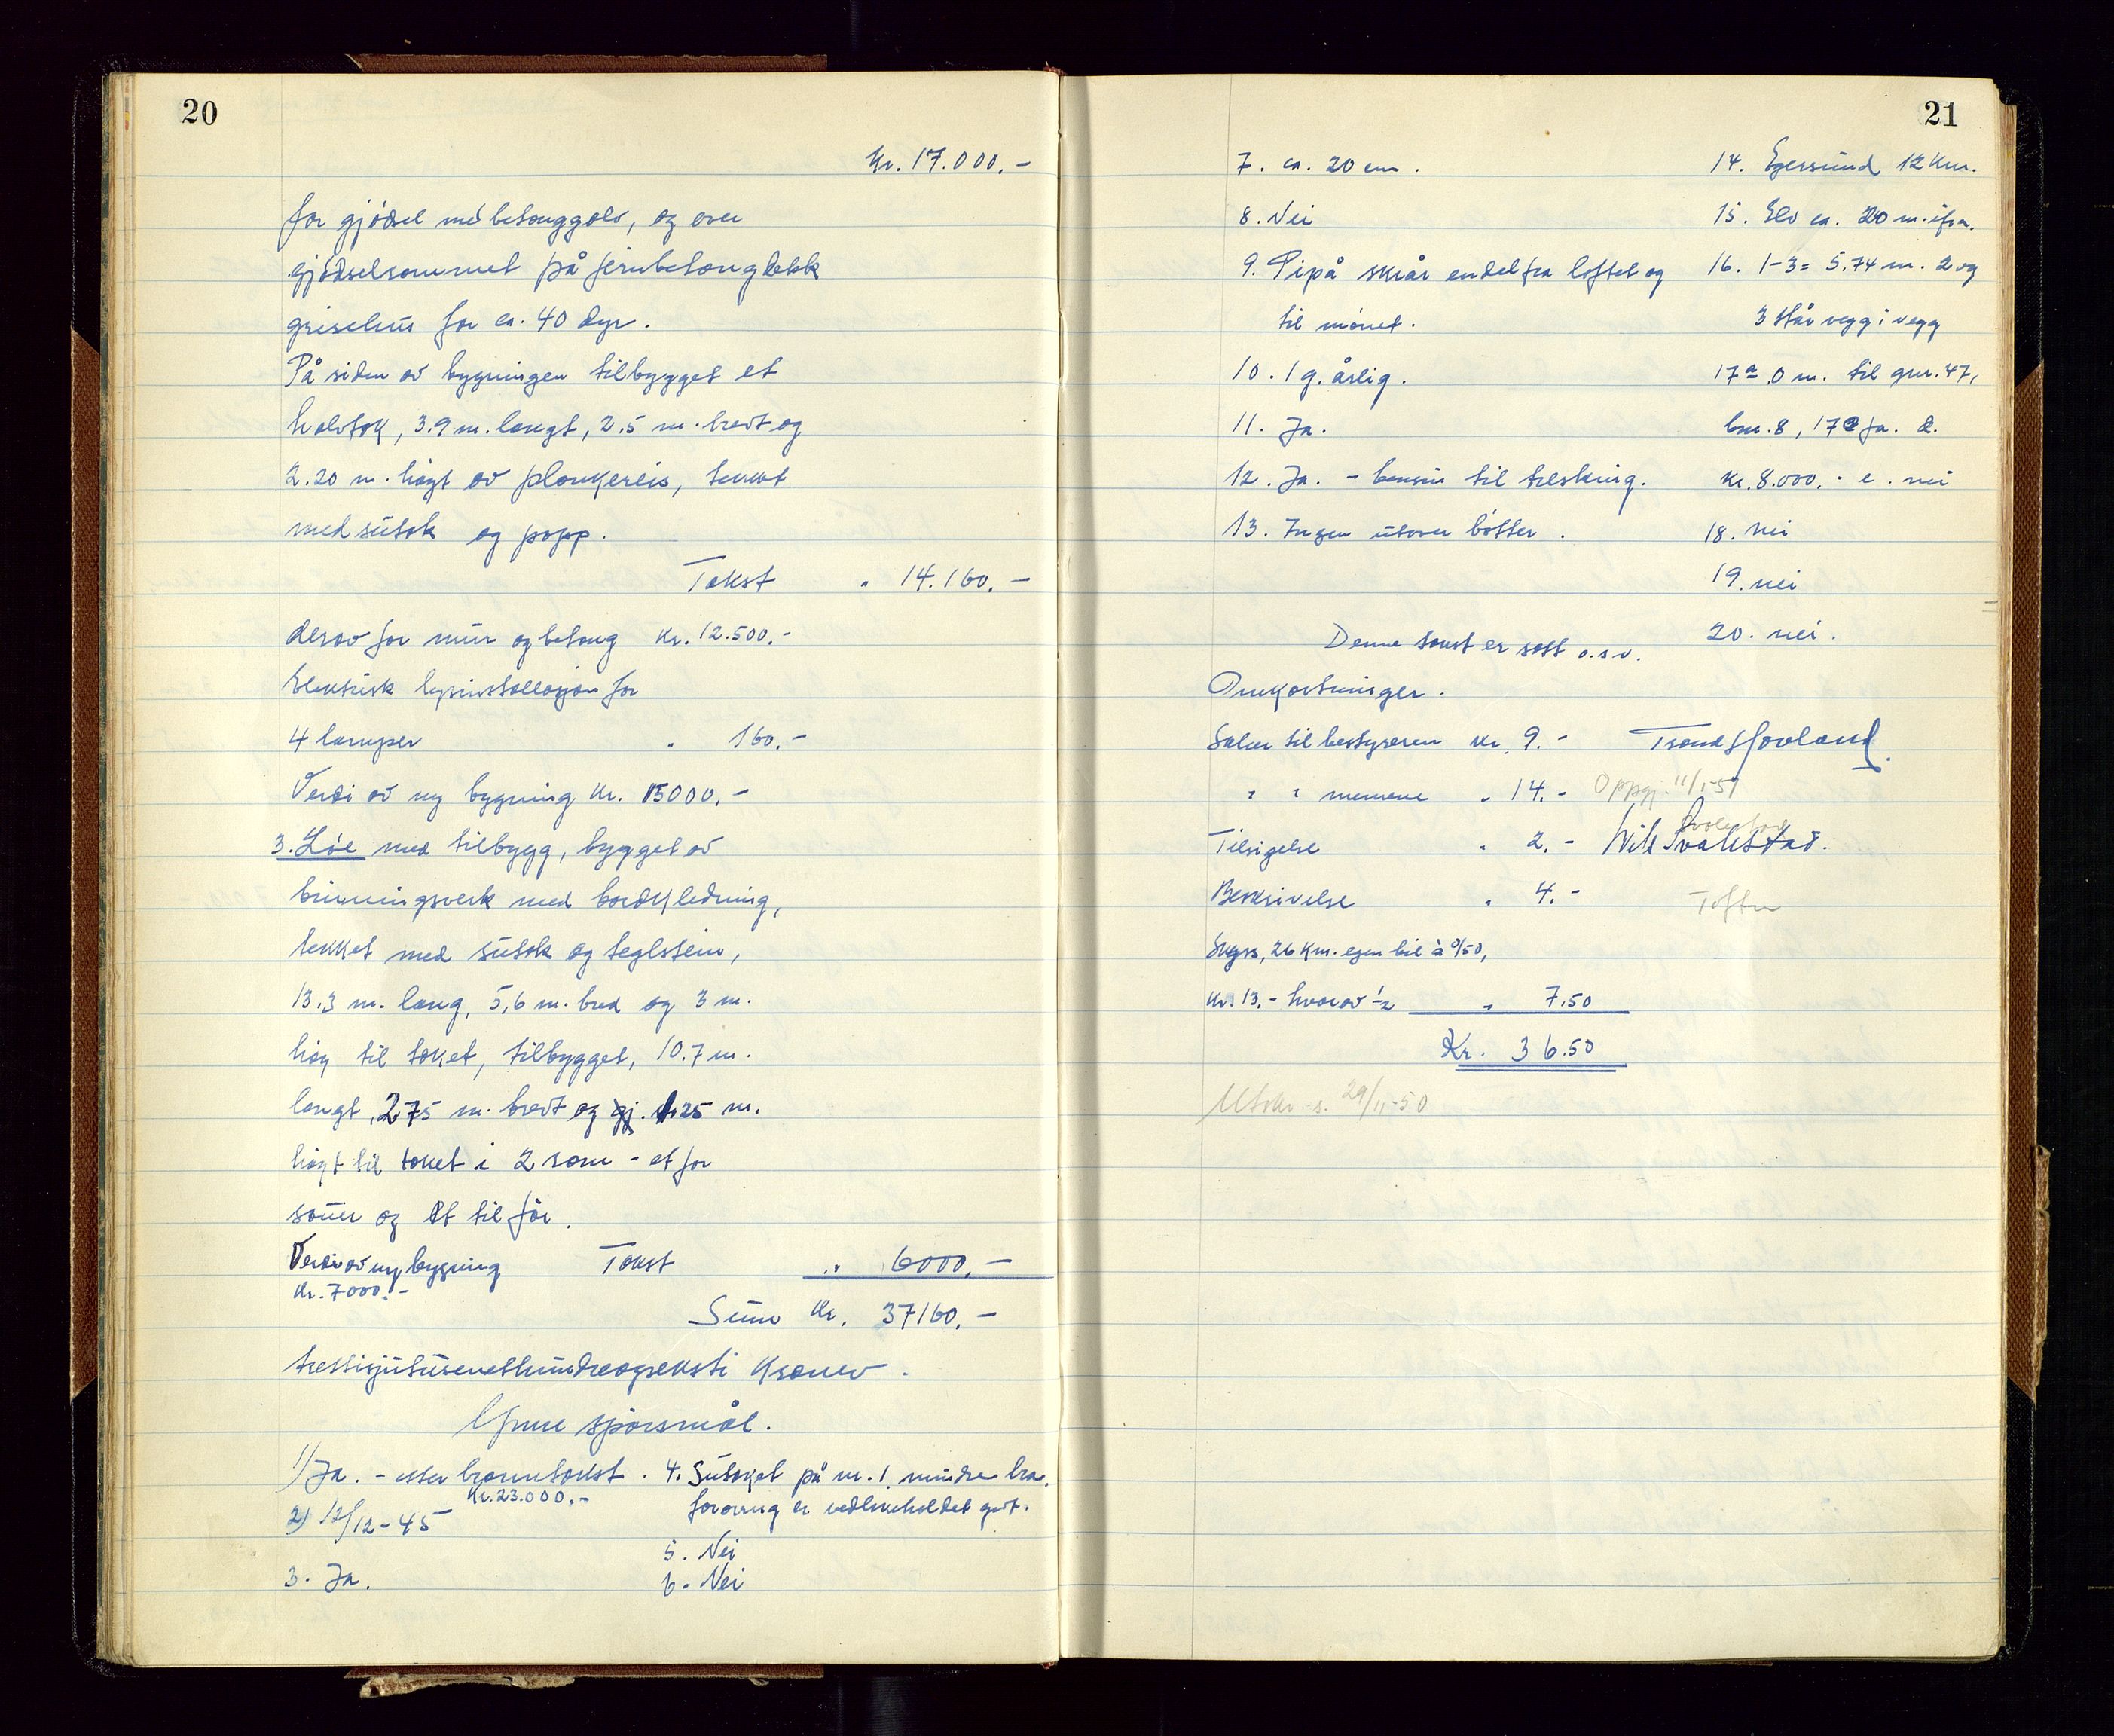 20
Kr. 17.000.-
for gjødsel med betonggolv, og over
gjødselrommet på jernbetongdekk
grisehus for ca. 40 dyr.
På siden av bygningen tilbygget et
halvtak, 3.9 m. langt, 2.5 m. bredt og
2.20 m. høgt av plankereis, tekket
med sutak og papp.
Takst " 14.160.-
derav for mur og betong Kr. 12.500.-
Elektrisk lysinstallasjon for
4 lamper " 160.-
Verdi av ny bygning Kr. 15000.-
3. Løe med tilbygg, bygget av
binningsverk med bordkledning,
tekket med sutak og teglstein,
13.3 m. lang, 5,6 m. bred og 3 m.
høy til taket, tilbygget, 10.7 m.
langt, 2.75 m. bredt og gj. 1.25 m.
høgt til taket i 2 rom - et for
sauer og et til før.
Verdi av ny bygning Takst " 6000.-
Kr. 7000.-
Sum Kr. 37160.-
trettisjutusenetthundreogseksti kroner.
Ymse spørsmål.
1) Ja. - etter branntakst.
Kr. 23.000.-
2) 12/12-45
3. Ja.
4. Sutaket på nr. 1 mindre bra.
forøvrig er vedlikeholdet godt.
5. Nei
6. Nei
21
7. ca. 20 cm.
8. Nei
9. Pipå skrår endel fra loftet og
til mønet.
10. 1 g. årlig.
11. Ja.
12. Ja. - bensin til tresking.
13. Ingen utover bøtter.
14. Egersund 12 km.
15. Elv ca. 20 m. ifra.
16. 1-3 = 5.74 m. 2 og
3 står vegg i vegg
17a. 0 m. til gnr. 47,
bnr. 8, 17c Ja. d.
kr. 8.000.- e. nei
18. nei
19. nei
20. nei.
Denne takst er satt o.s.v.
Omkostninger.
Salær til bestyreren kr. 9.- Trond Hovland.
" " mennene " 14.- Oppgj. 11/1-51
Tilsigelse " 2.- Nils Svalestad.
Beskrivelse " 4.-
Skyss, 26 km. egen bil à 0/50,
kr. 13.- hvorav 1/2 " 7.50
Kr. 36.50
Utskr. s. 29/11-50